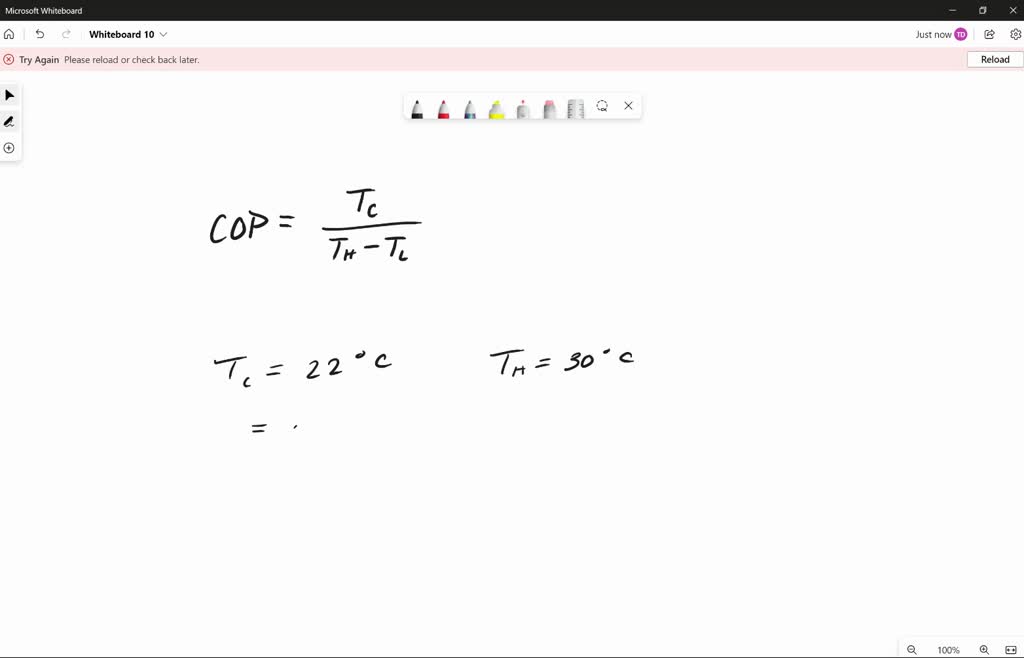 Microsoft Whiteboard
Whiteboard 10
Just now TD
Try Again Please reload or check back later.
Reload
COP = T_C / (T_H - T_L)
T_C = 22°C T_H = 30°C
=
100%